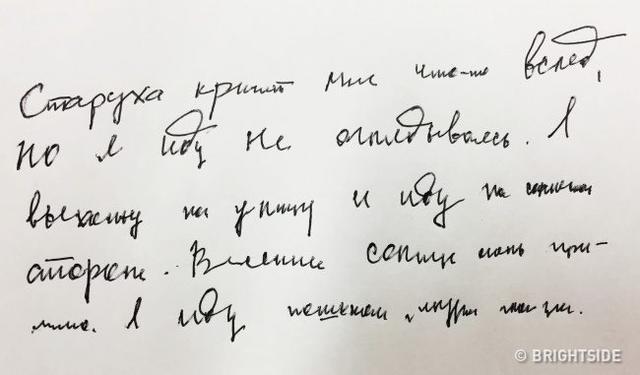 Старуха кричит мне что-то вслед,
но я иду не оглядываясь. Я
выхожу на улицу и иду по солнечной
стороне. Весеннее солнце очень при-
ятно. Я иду пешком, глаза.
© BRIGHTSIDE